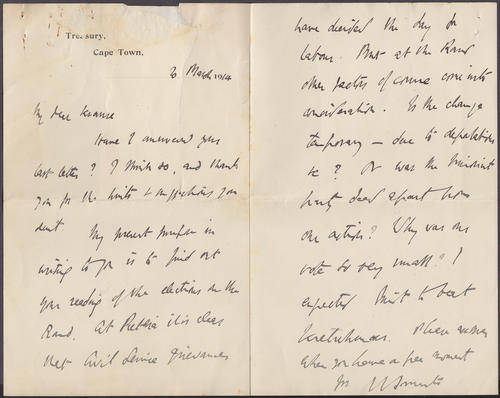 Treasury,
Cape Town.
March 1914
My dear Krause
Have I answered your
last letter? I think so, and thank
you for the hints & suggestions you
sent. My present purpose in
writing to you is to find out
your reading of the elections on the
Rand. At Pretoria it is clear
that Civil Service grievances
have decided the day for
labour. But at the Rand
other factors of course come into
consideration. Is the change
temporary — due to deportations
&c? Or was the Unionist
party dead apart from
our action? Why was our
vote so very small? I
expected to beat
Please answer
when you have a free moment